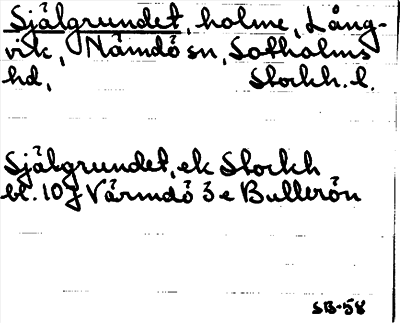 Själgrundet, holme, Lång-
vik, Nämdö sn, Sotholms
hd, Stockh. l.
Själgrundet, ek Stockh
bl. 10j Värmdö 3e Bullerön
SB-58